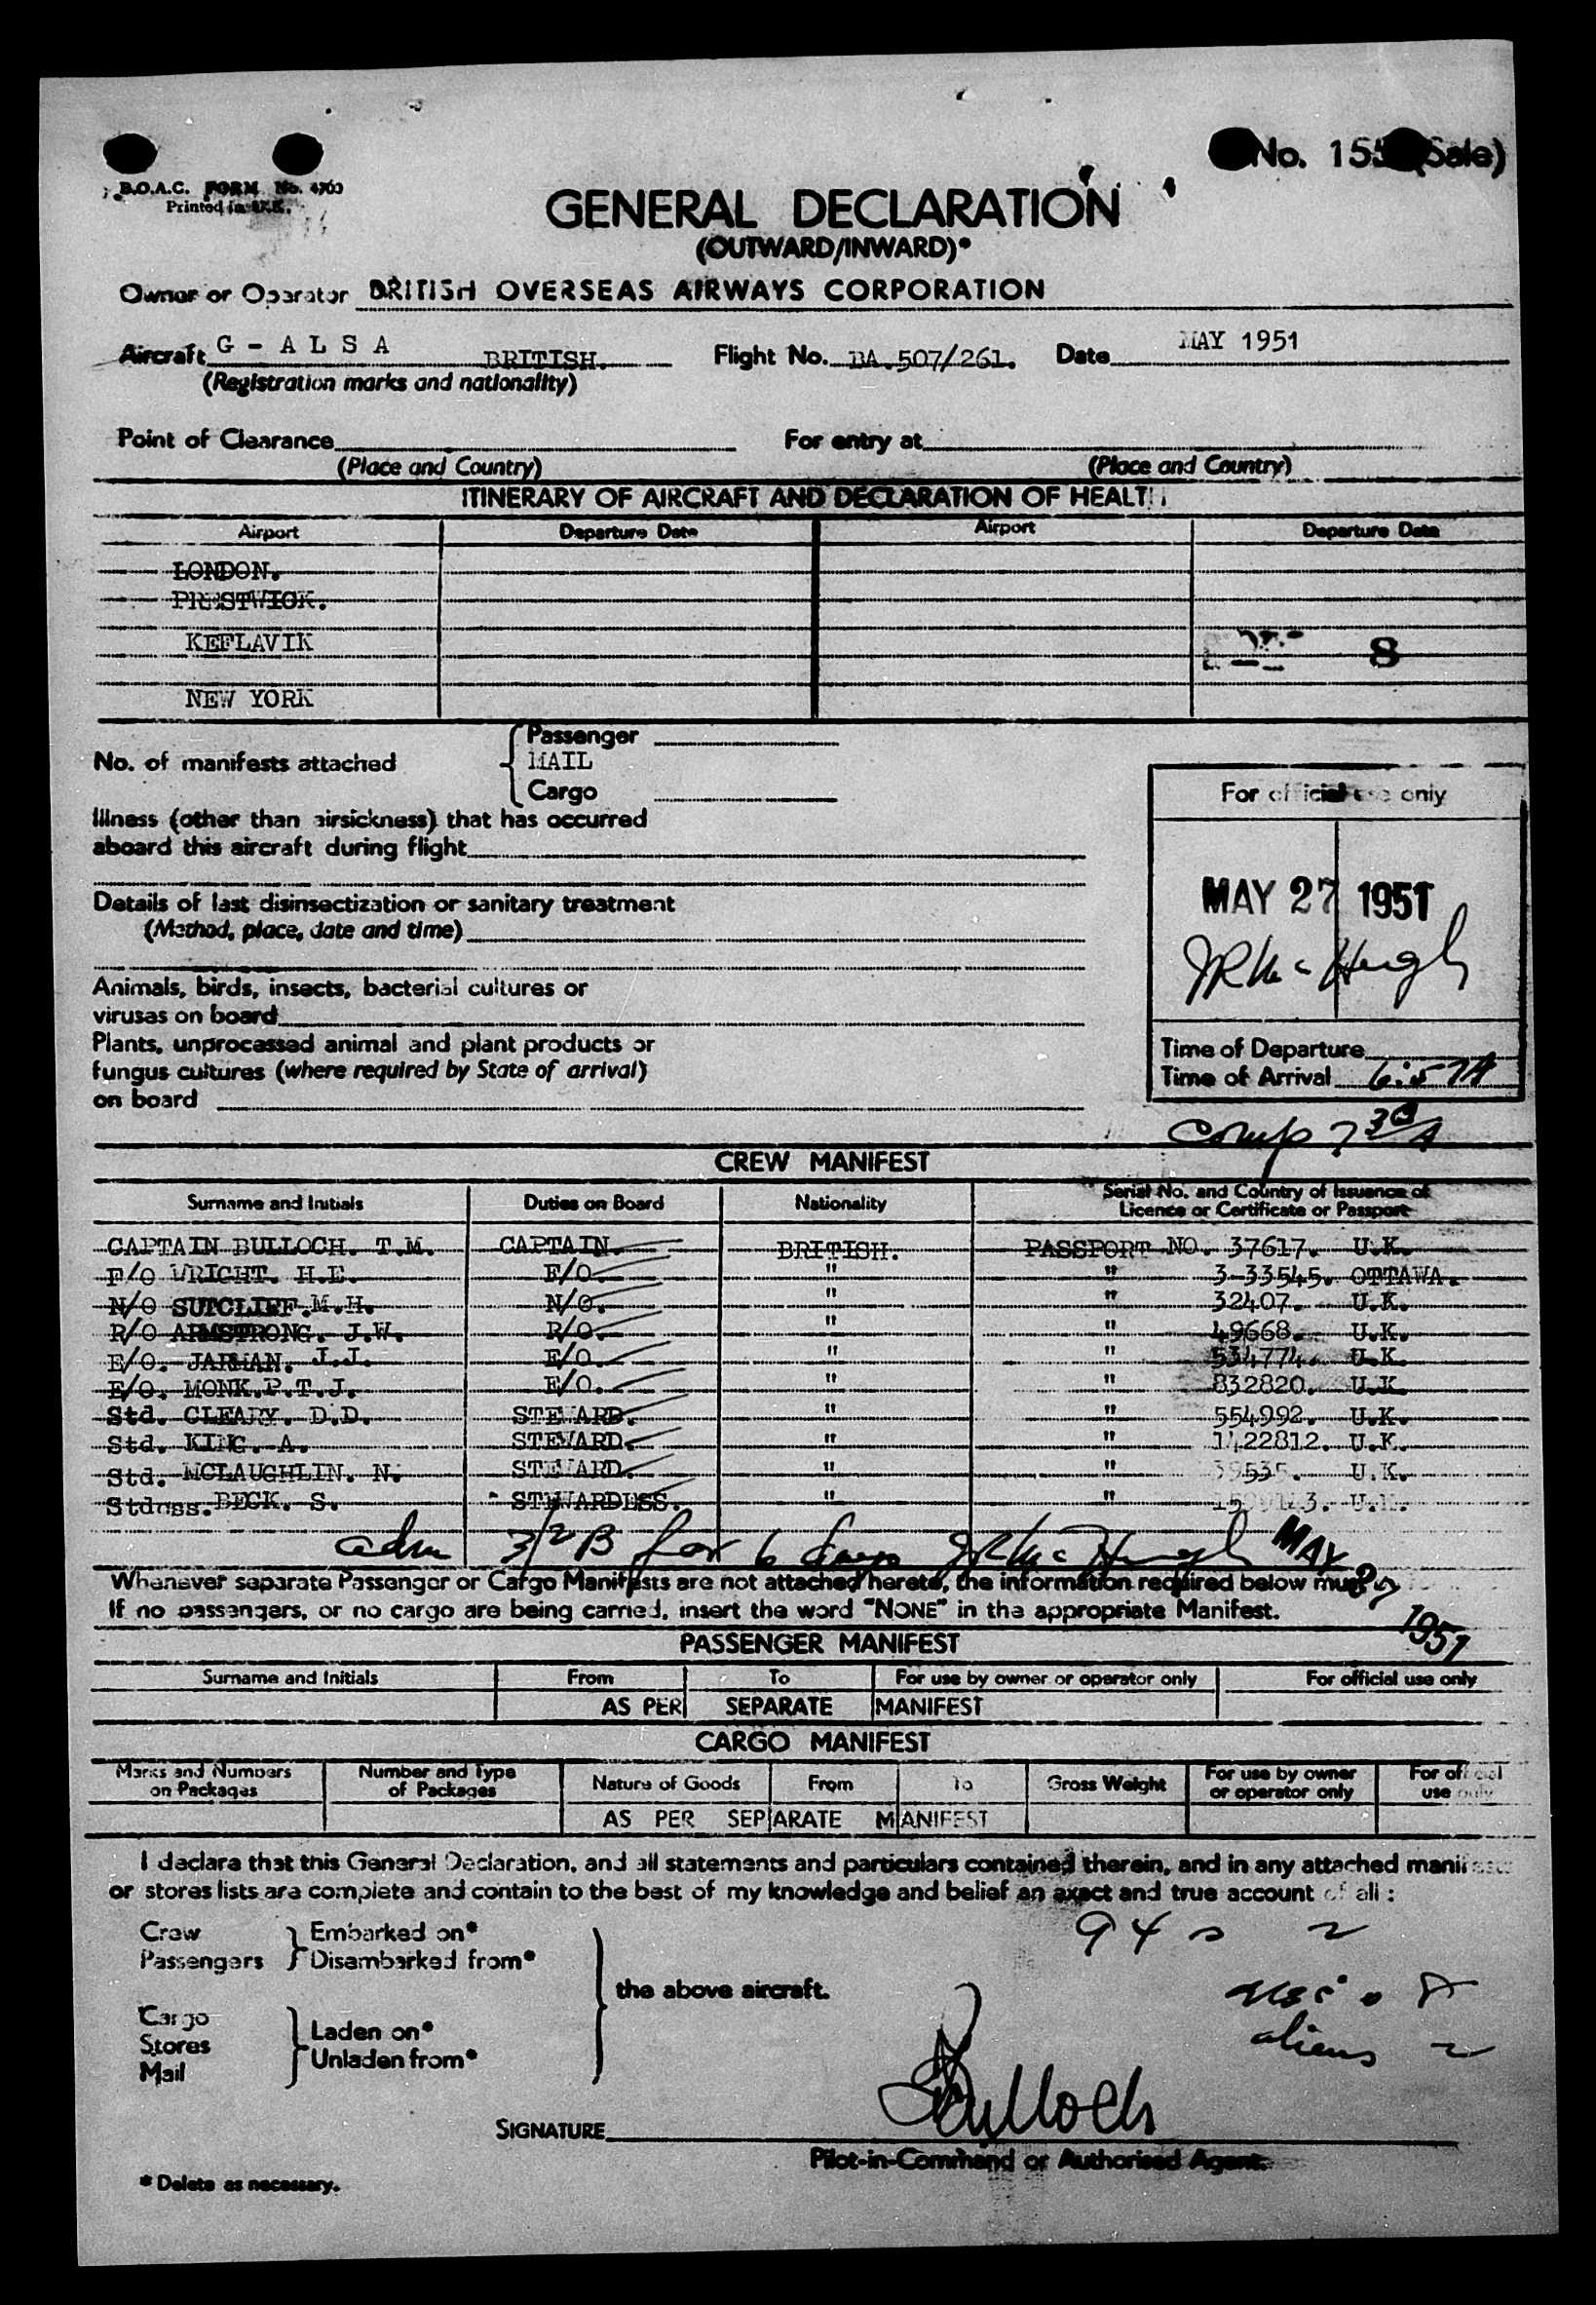 No. 155 (Sale)
B.O.A.C. FORM No. 4703
Printed in U.K.
GENERAL DECLARATION
(OUTWARD/INWARD)*
Owner or Operator BRITISH OVERSEAS AIRWAYS CORPORATION
Aircraft G - A L S A BRITISH. Flight No. BA.507/261. Date MAY 1951
(Registration marks and nationality)
Point of Clearance For entry at
(Place and Country) (Place and Country)
ITINERARY OF AIRCRAFT AND DECLARATION OF HEALTH
Airport Departure Date Airport Departure Date
LONDON.
PRESTWICK.
KEFLAVIK 8
NEW YORK
Passenger
No. of manifests attached MAIL
Cargo
Illness (other than airsickness) that has occurred
aboard this aircraft during flight
Details of last disinsectization or sanitary treatment
(Method, place, date and time)
Animals, birds, insects, bacterial cultures or
viruses on board
Plants, unprocessed animal and plant products or
fungus cultures (where required by State of arrival)
on board
For official use only
MAY 27 1951
JR McHugh
Time of Departure
Time of Arrival 6:57A
Comp 7 30/A
CREW MANIFEST
Surname and Initials Duties on Board Nationality Serial No. and Country of Issuance of Licence or Certificate or Passport
CAPTAIN BULLOCH. T.M. CAPTAIN. BRITISH. PASSPORT NO. 37617. U.K.
F/O WRIGHT. H.E. F/O. " " 3-33545. OTTAWA.
N/O SUTCLIFF.M.H. N/O. " " 32407. U.K.
R/O ARMSTRONG. J.W. R/O. " " 49668. U.K.
E/O. JARMAN. J.J. E/O. " " 534774. U.K.
E/O. MONK.P.T.J. E/O. " " 832820. U.K.
Std. CLEARY. D.D. STEWARD. " " 554992. U.K.
Std. KING. A. STEWARD. " " 1422812. U.K.
Std. MCLAUGHLIN. N. STEWARD. " " 39535. U.K.
Stdess. BECK. S. STEWARDESS. " " U.K.
adm 3/2 B for 6 days JR McHugh MAY 27 1951
Whenever separate Passenger or Cargo Manifests are not attached hereto, the information required below must
If no passengers, or no cargo are being carried, insert the word "NONE" in the appropriate Manifest.
PASSENGER MANIFEST
Surname and Initials From To For use by owner or operator only For official use only
AS PER SEPARATE MANIFEST
CARGO MANIFEST
Marks and Numbers on Packages Number and Type of Packages Nature of Goods From To Gross Weight For use by owner or operator only For official use only
AS PER SEPARATE MANIFEST
I declare that this General Declaration, and all statements and particulars contained therein, and in any attached manifests
or stores lists are complete and contain to the best of my knowledge and belief an exact and true account of all :
Crew Embarked on*
Passengers Disembarked from*
the above aircraft.
Cargo
Stores Laden on*
Mail Unladen from*
aliens 2
SIGNATURE Bulloch
Pilot-in-Command or Authorised Agent.
* Delete as necessary.